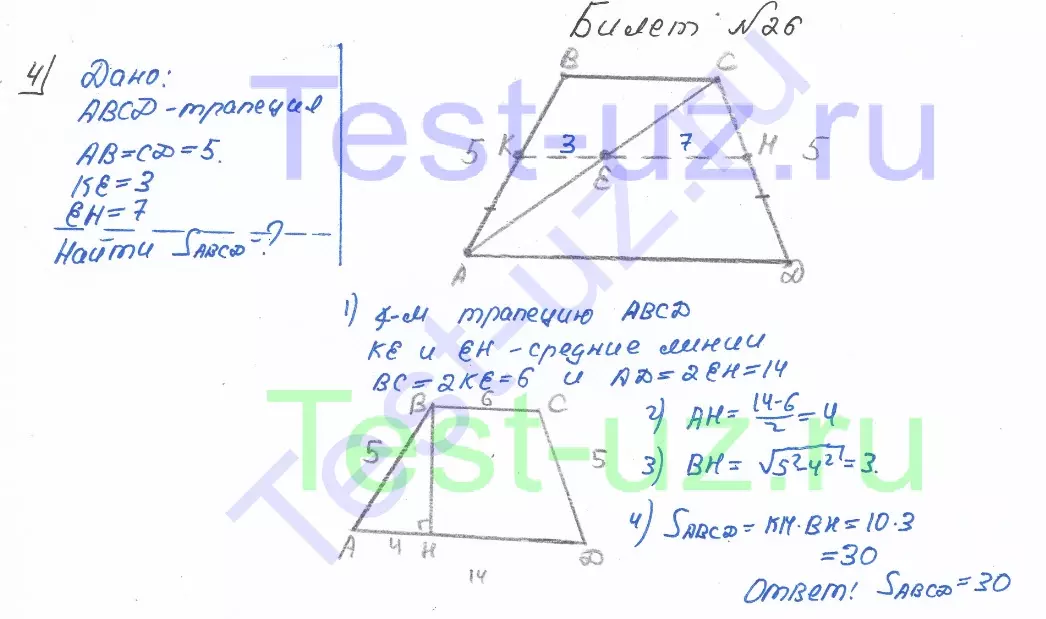 Билет №26
4) Дано:
ABCD-трапеция
AB=CD=5.
KE=3
EH=7
Найти SABCD=?
B C
5 K 3 E 7 H 5
A D
1) Δ-м трапецию ABCD
KE и EH - средние линии
BC=2KE=6 и AD=2EH=14
B 6 C
5 5
A 4 H D
14
2) AH= 14-6/2 =4
3) BH= √5²-4² =3.
4) SABCD= KH·BH=10·3
=30
Ответ! SABCD=30
Test-uz.ru
Test-uz.ru
Test-uz.ru